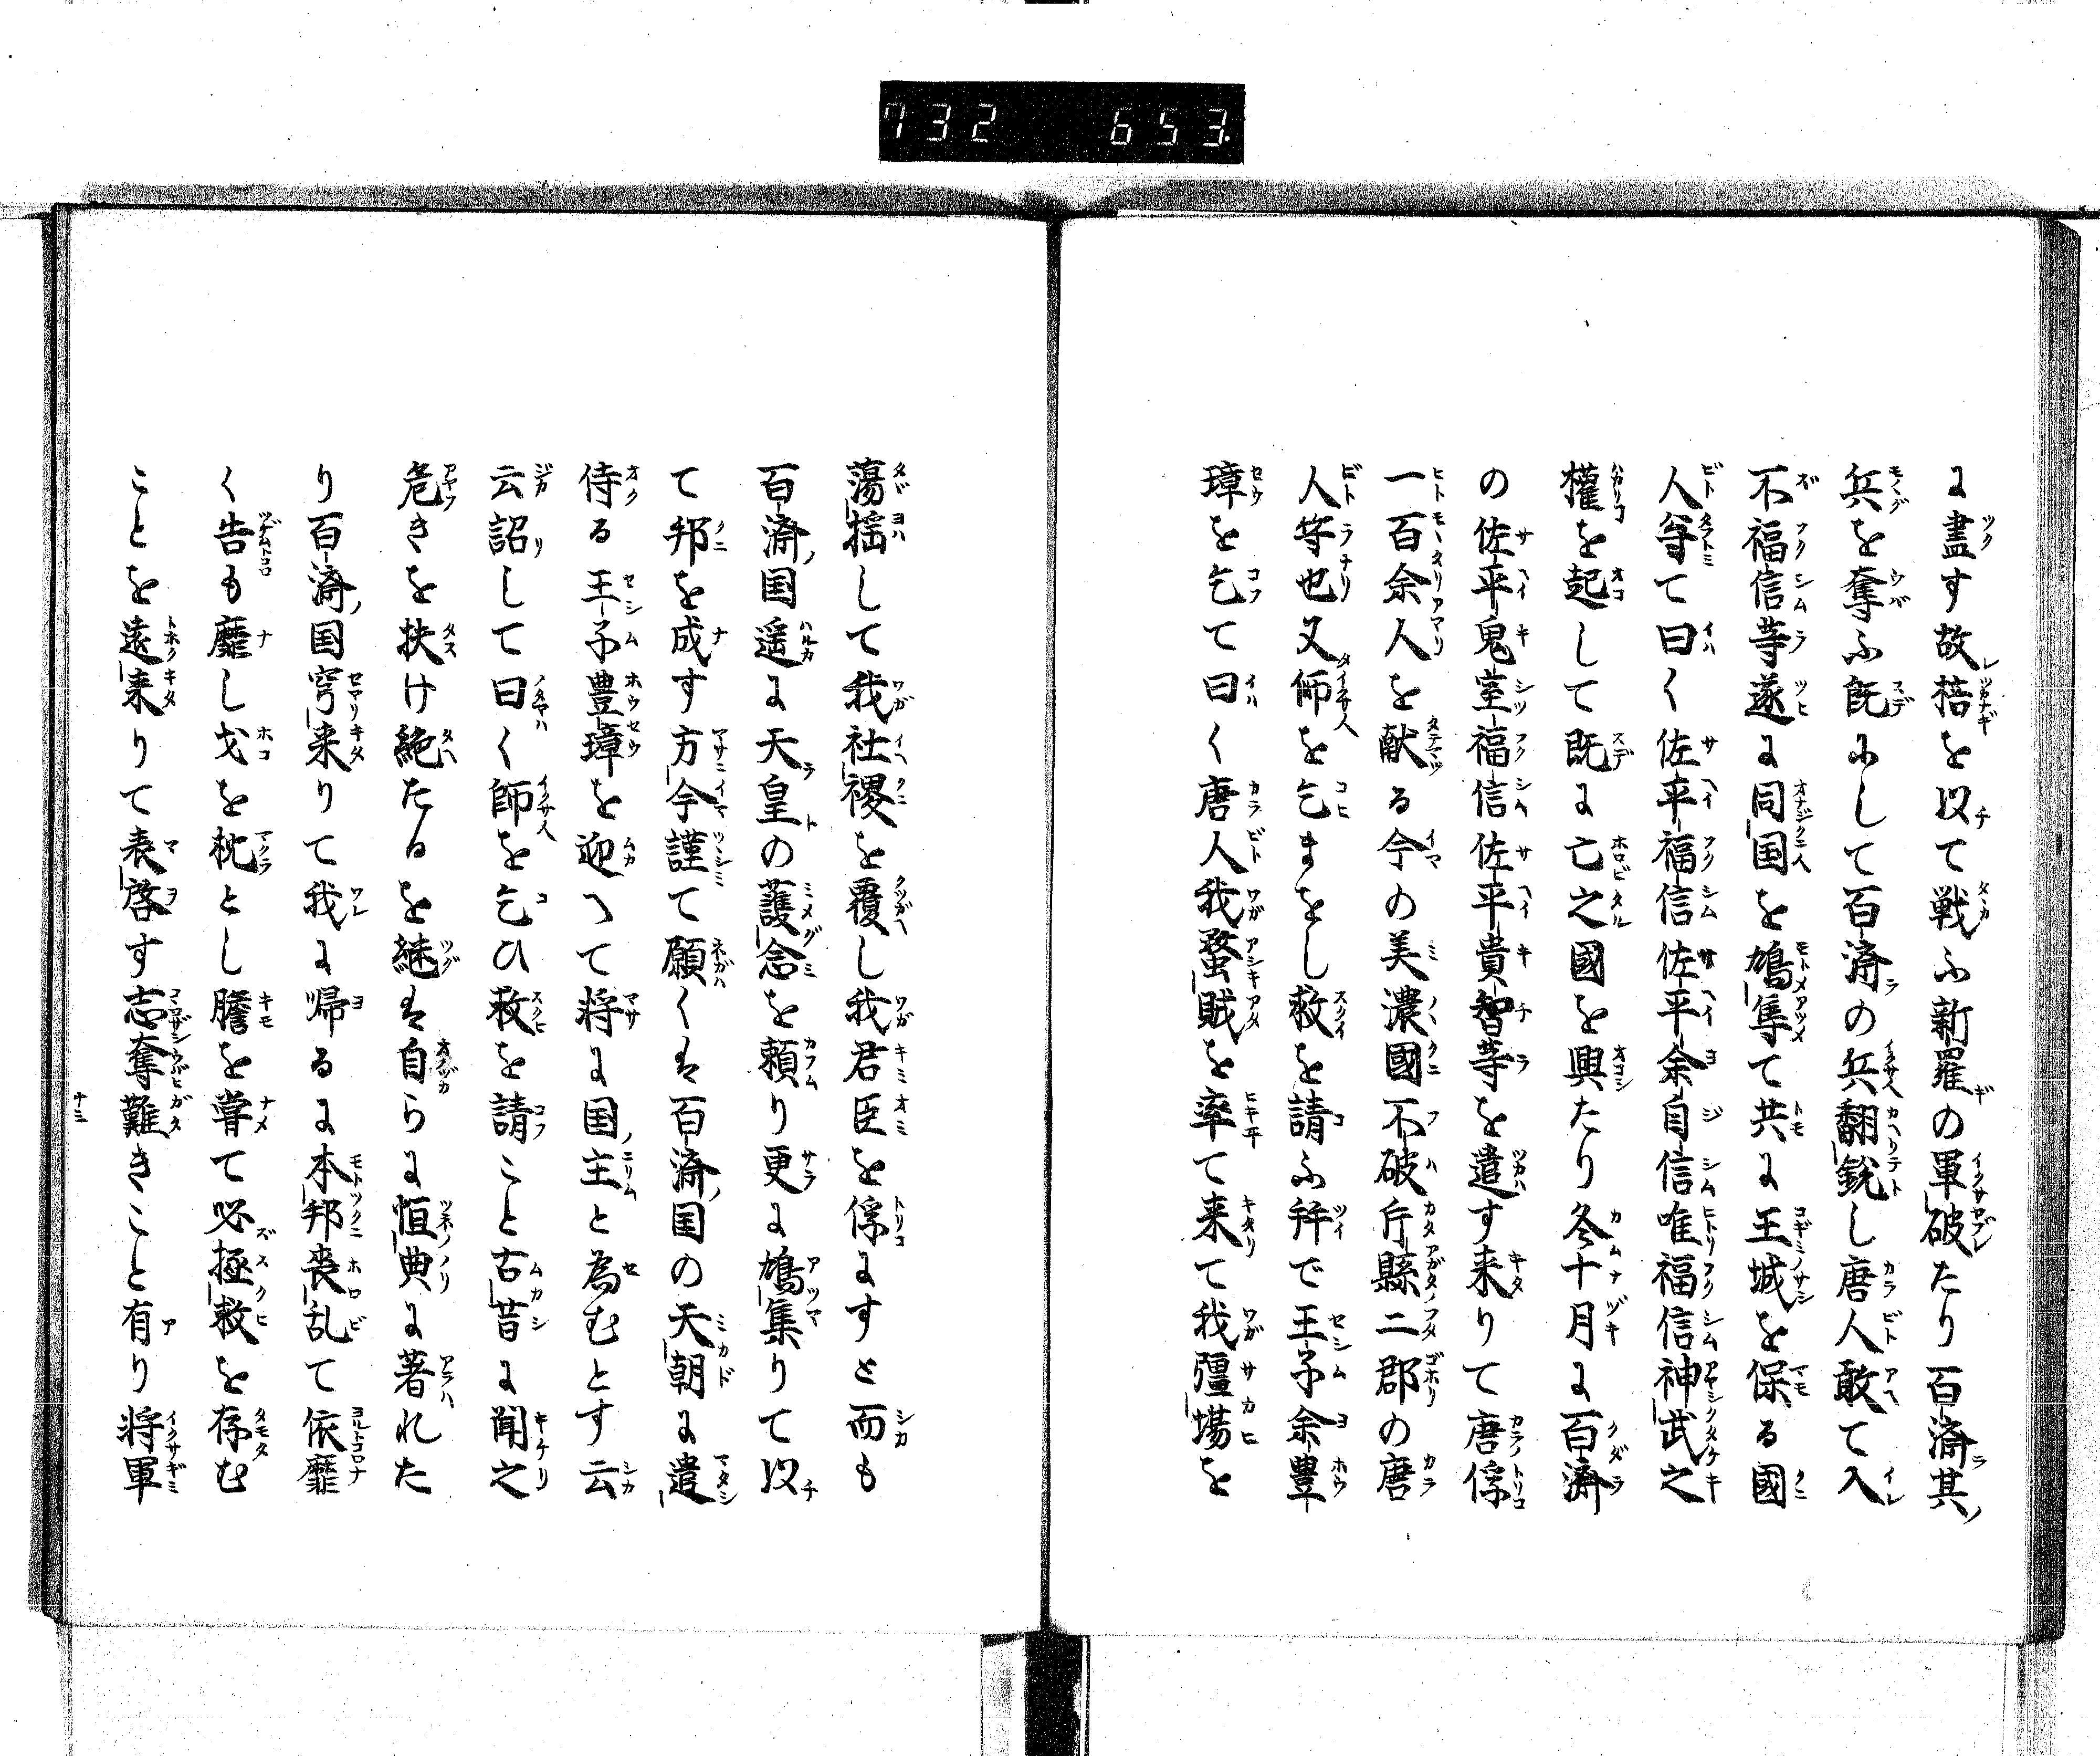 732 653
に盡す故棓を以て戦ふ新羅の軍破たり百済其
兵を奪ふ既にして百済の兵翻鋭し唐人敢て入
不福信等遂に同国を鳩集て共に王城を保る國
人等て曰く佐平福信佐平余自信唯福信神武之
權を起して既に亡之國を興たり冬十月に百済
の佐平鬼室福信佐平貴智等を遣す来りて唐俘
一百余人を献る今の美濃國不破片縣二郡の唐
人等也又師を乞まをし救を請ふ并で王子余豊
璋を乞て曰く唐人我蝥賊を率て来て我彊場を
蕩揺して我社稷を覆し我君臣を俘にすと而も
百済国遥に天皇の護念を頼り更に鳩集りて以
て邦を成す方今謹て願くは百済国の天朝に遣
侍る王子豊璋を迎へて将に国主と為むとす云
云詔して曰く師を乞ひ救を請こと古昔に聞之
危きを扶け絶たるを継は自らに恒典に著れた
り百済国窮来りて我に帰るに本邦喪乱て依靡
く告も靡し戈を枕とし膽を甞て必極救を存む
ことを遠来りて表啓す志奪難きこと有り将軍